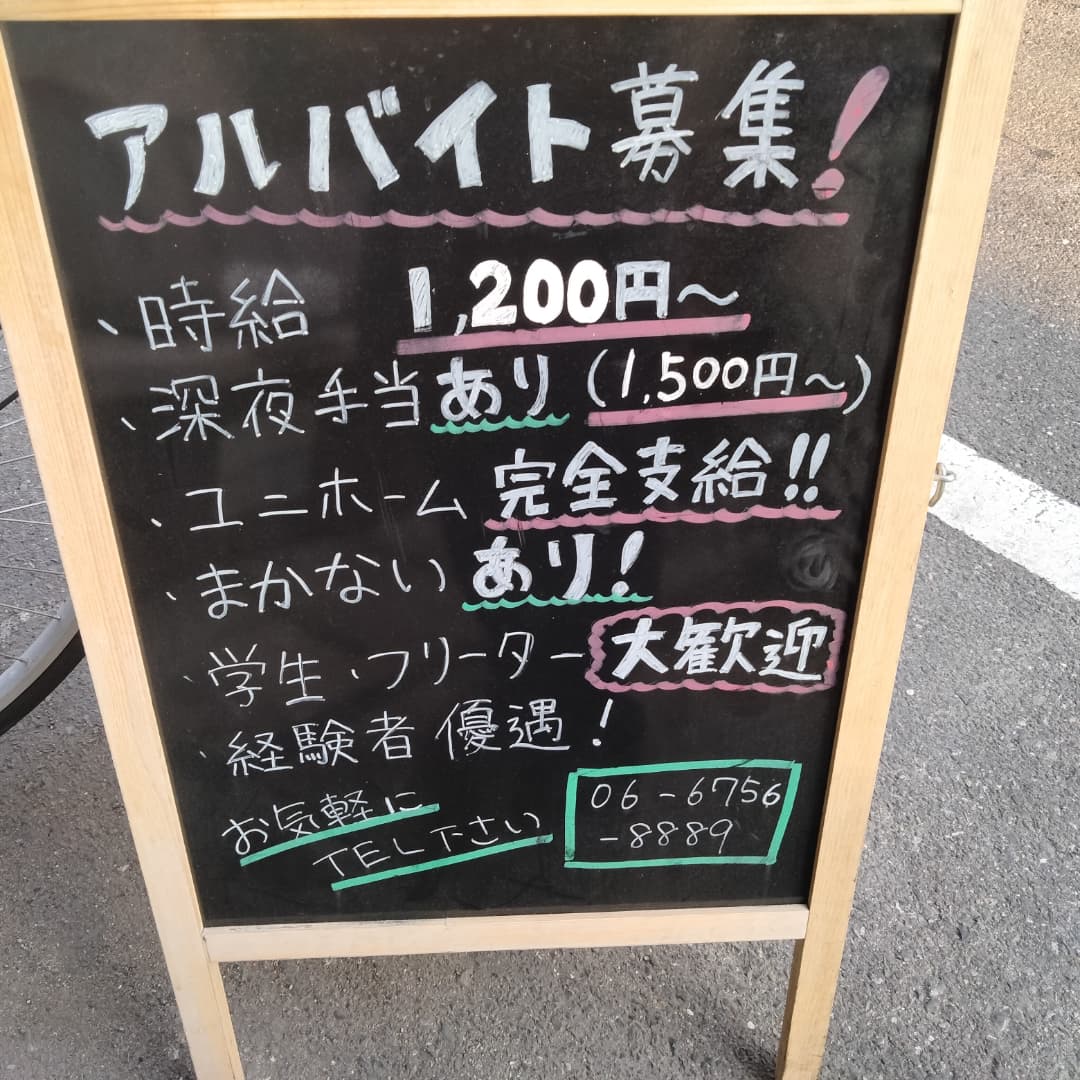 アルバイト募集!
、時給 1,200円〜
、深夜手当あり (1,500円〜)
、ユニホーム 完全支給!!
、まかない あり!
、学生・フリーター 大歓迎
、経験者 優遇!
お気軽に
TEL下さい
06-6756
-8889